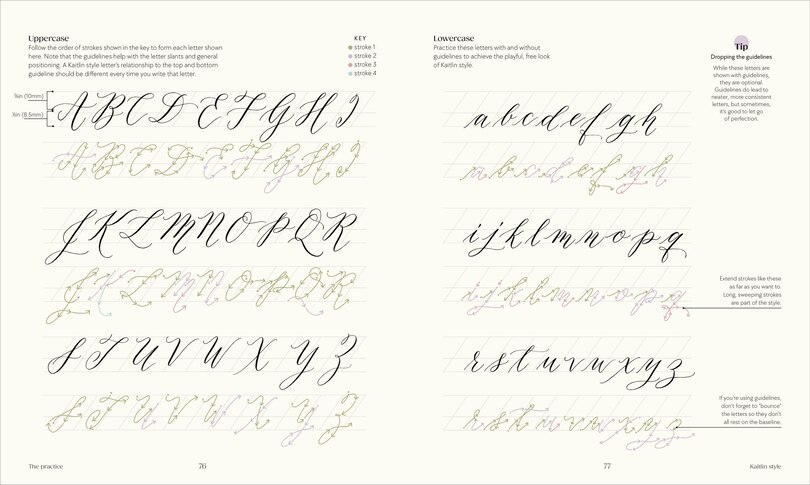 Uppercase
Follow the order of strokes shown in the key to form each letter shown
here. Note that the guidelines help with the letter slants and general
positioning. A Kaitlin style letter's relationship to the top and bottom
guideline should be different every time you write that letter.
KEY
stroke 1
stroke 2
stroke 3
stroke 4
(10mm)
(8.5mm)
A B C D E F G H I
A B C D E F G H I
J K L M N O P Q R
J K L M N O P Q R
S T U V W X Y Z
S T U V W X Y Z
The practice
76
Lowercase
Practice these letters with and without
guidelines to achieve the playful, free look
of Kaitlin style.
a b c d e f g h
a b c d e f g h
i j k l m n o p q
i j k l m n o p q
r s t u v w x y z
r s t u v w x y z
Tip
Dropping the guidelines
While these letters are
shown with guidelines,
they are optional.
Guidelines do lead to
neater, more consistent
letters, but sometimes,
it's good to let go
of perfection.
Extend strokes like these
as far as you want to.
Long, sweeping strokes
are part of the style.
If you're using guidelines,
don't forget to "bounce"
the letters so they don't
all rest on the baseline.
77
Kaitlin style